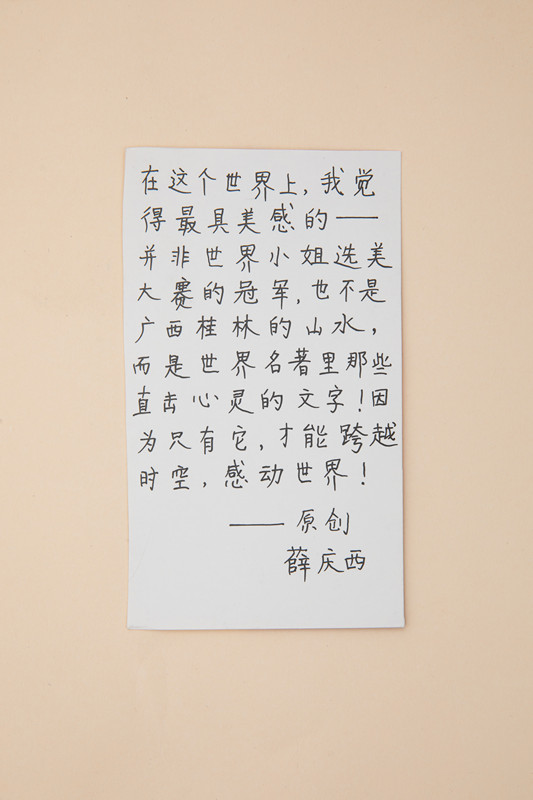 在这个世界上,我觉
得最具美感的——
并非世界小姐选美
大赛的冠军,也不是
广西桂林的山水,
而是世界名著里那些
直击心灵的文字!因
为只有它,才能跨越
时空,感动世界!
——原创
薛庆西